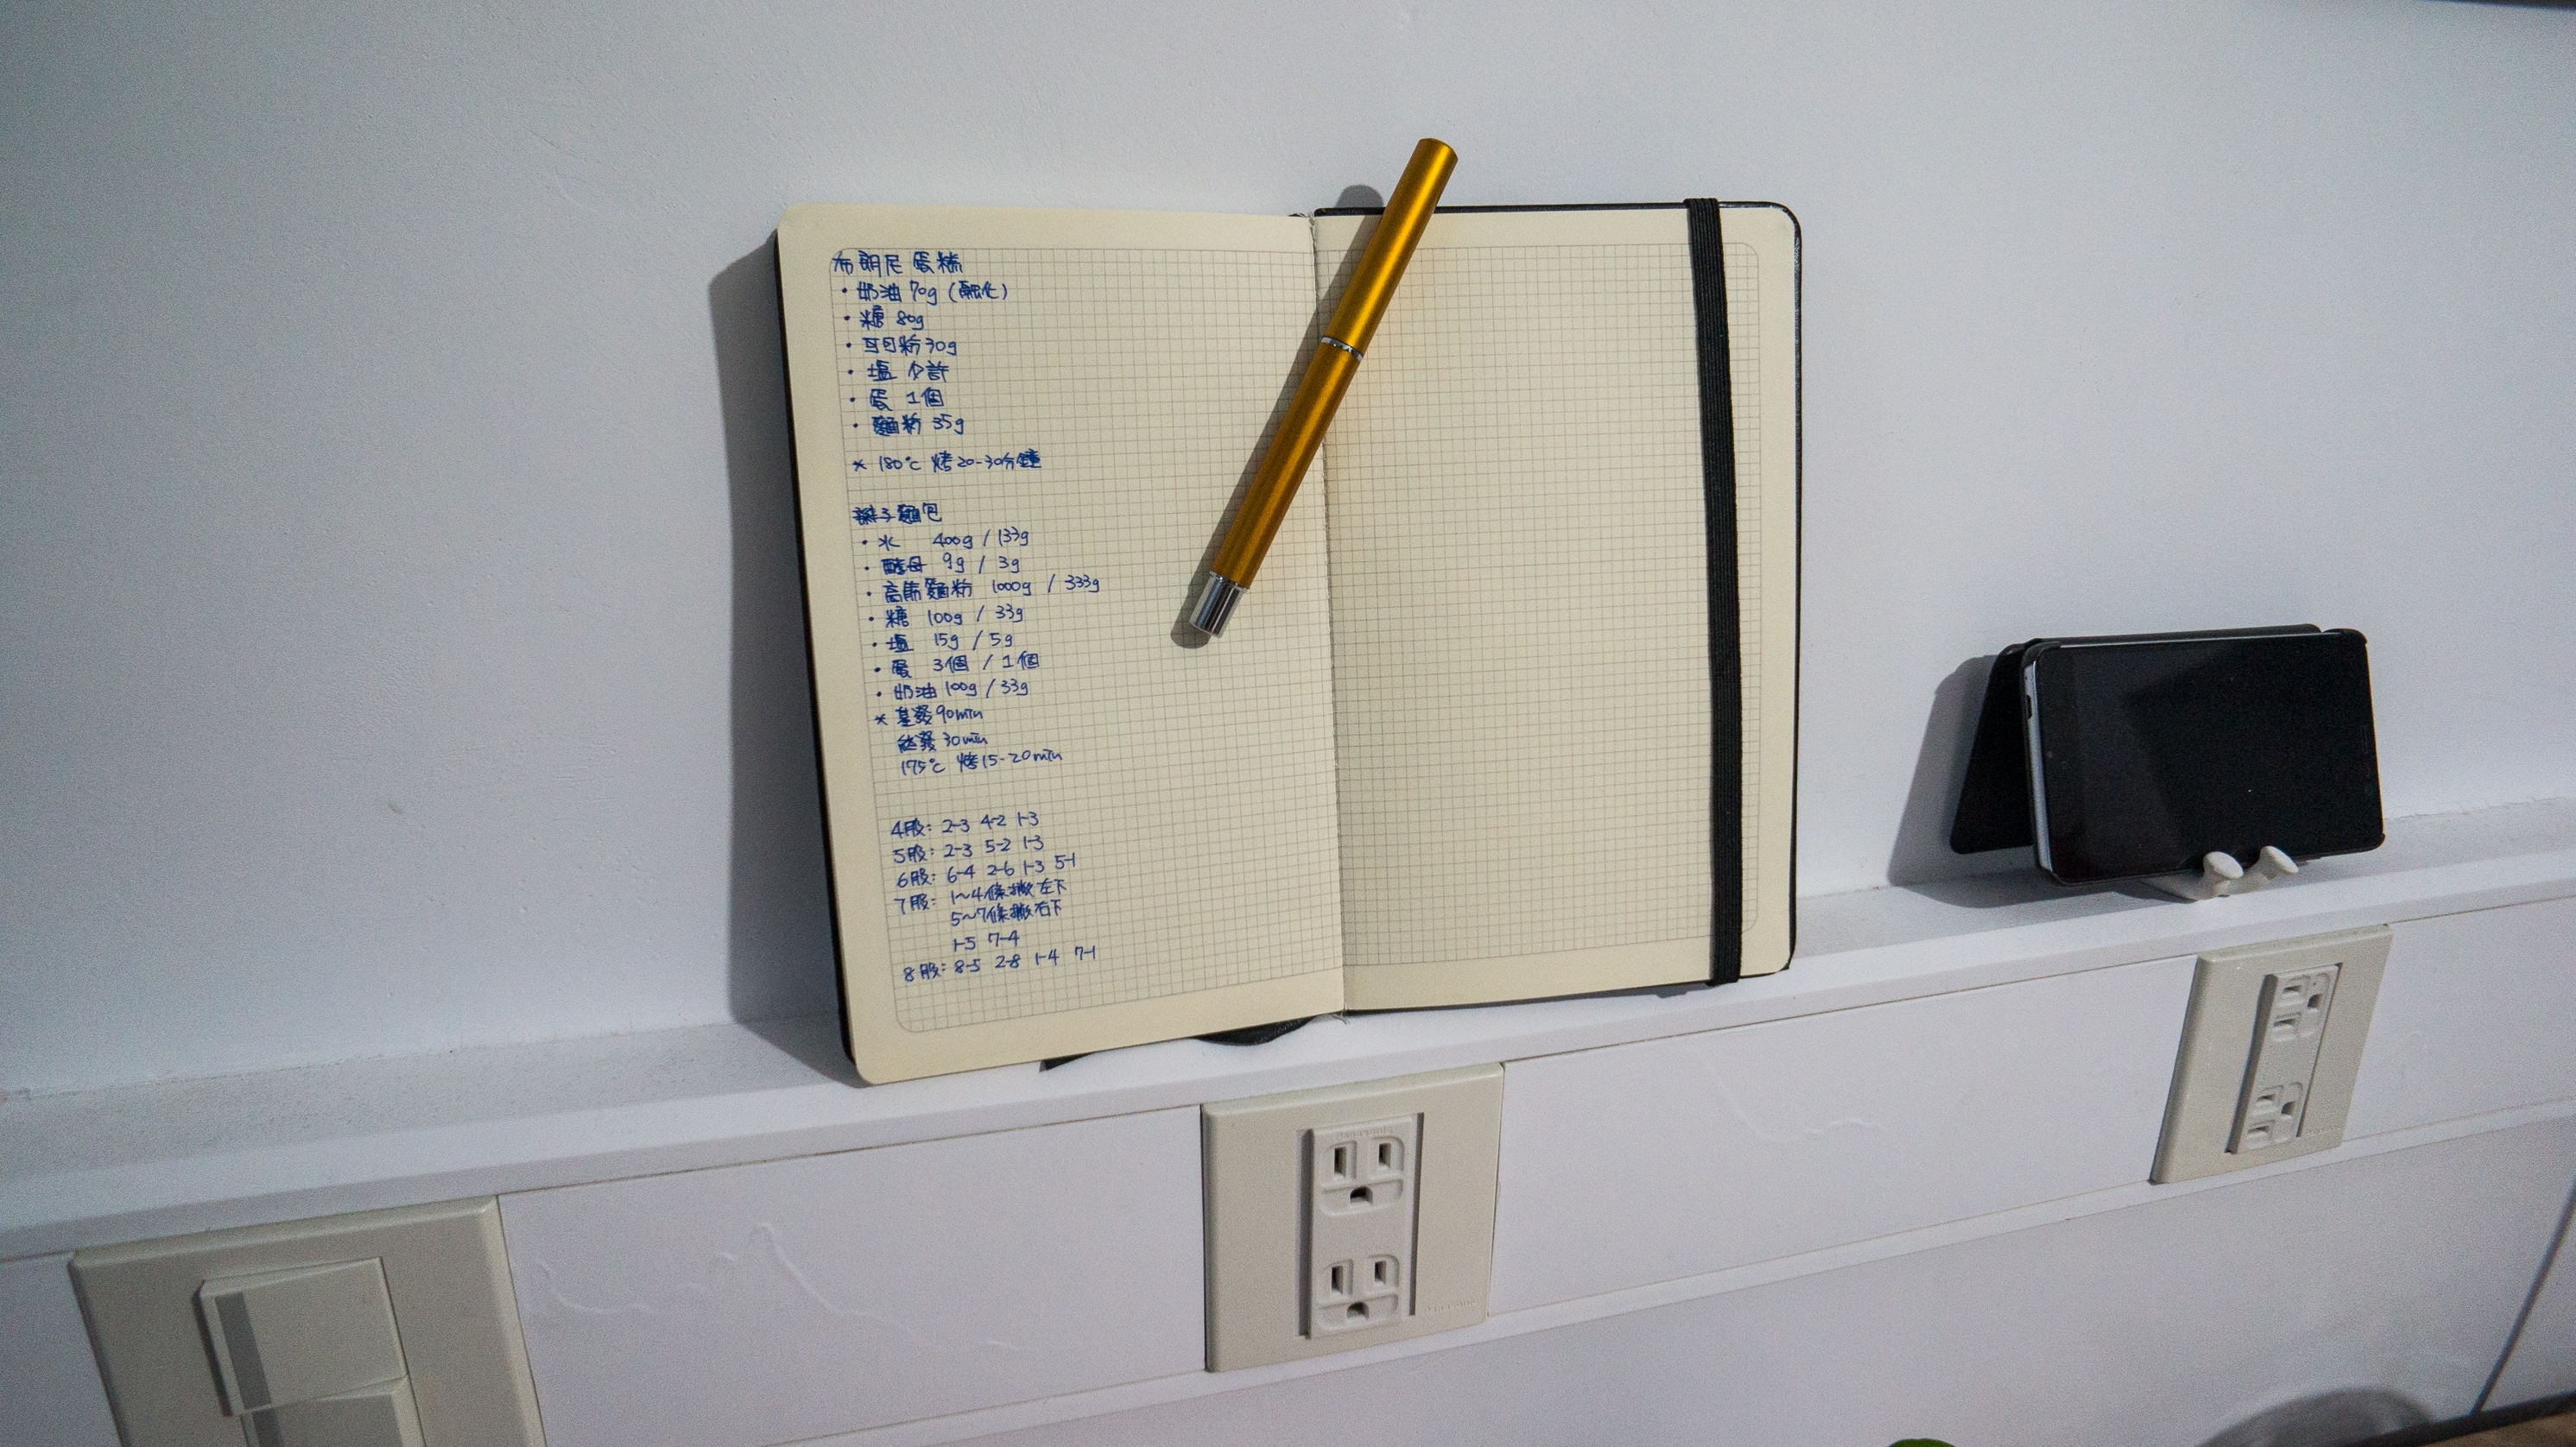 布朗尼 蛋糕
・奶油 70g (融化)
・糖 80g
・可可粉 30g
・塩 少許
・蛋 1個
・麵粉 35g
* 180℃ 烤20-30分鐘
辮子麵包
・水 400g / 133g
・酵母 9g / 3g
・高筋麵粉 1000g / 333g
・糖 100g / 33g
・塩 15g / 5g
・蛋 3個 / 1個
・奶油 100g / 33g
* 基發90min
終發30min
175℃ 烤15-20min
4股: 2-3 4-2 1-3
5股: 2-3 5-2 1-3
6股: 6-4 2-6 1-3 5-1
7股: 1~4條撇左下
5~7條撇右下
1-5 7-4
8股: 8-5 2-8 1-4 7-1